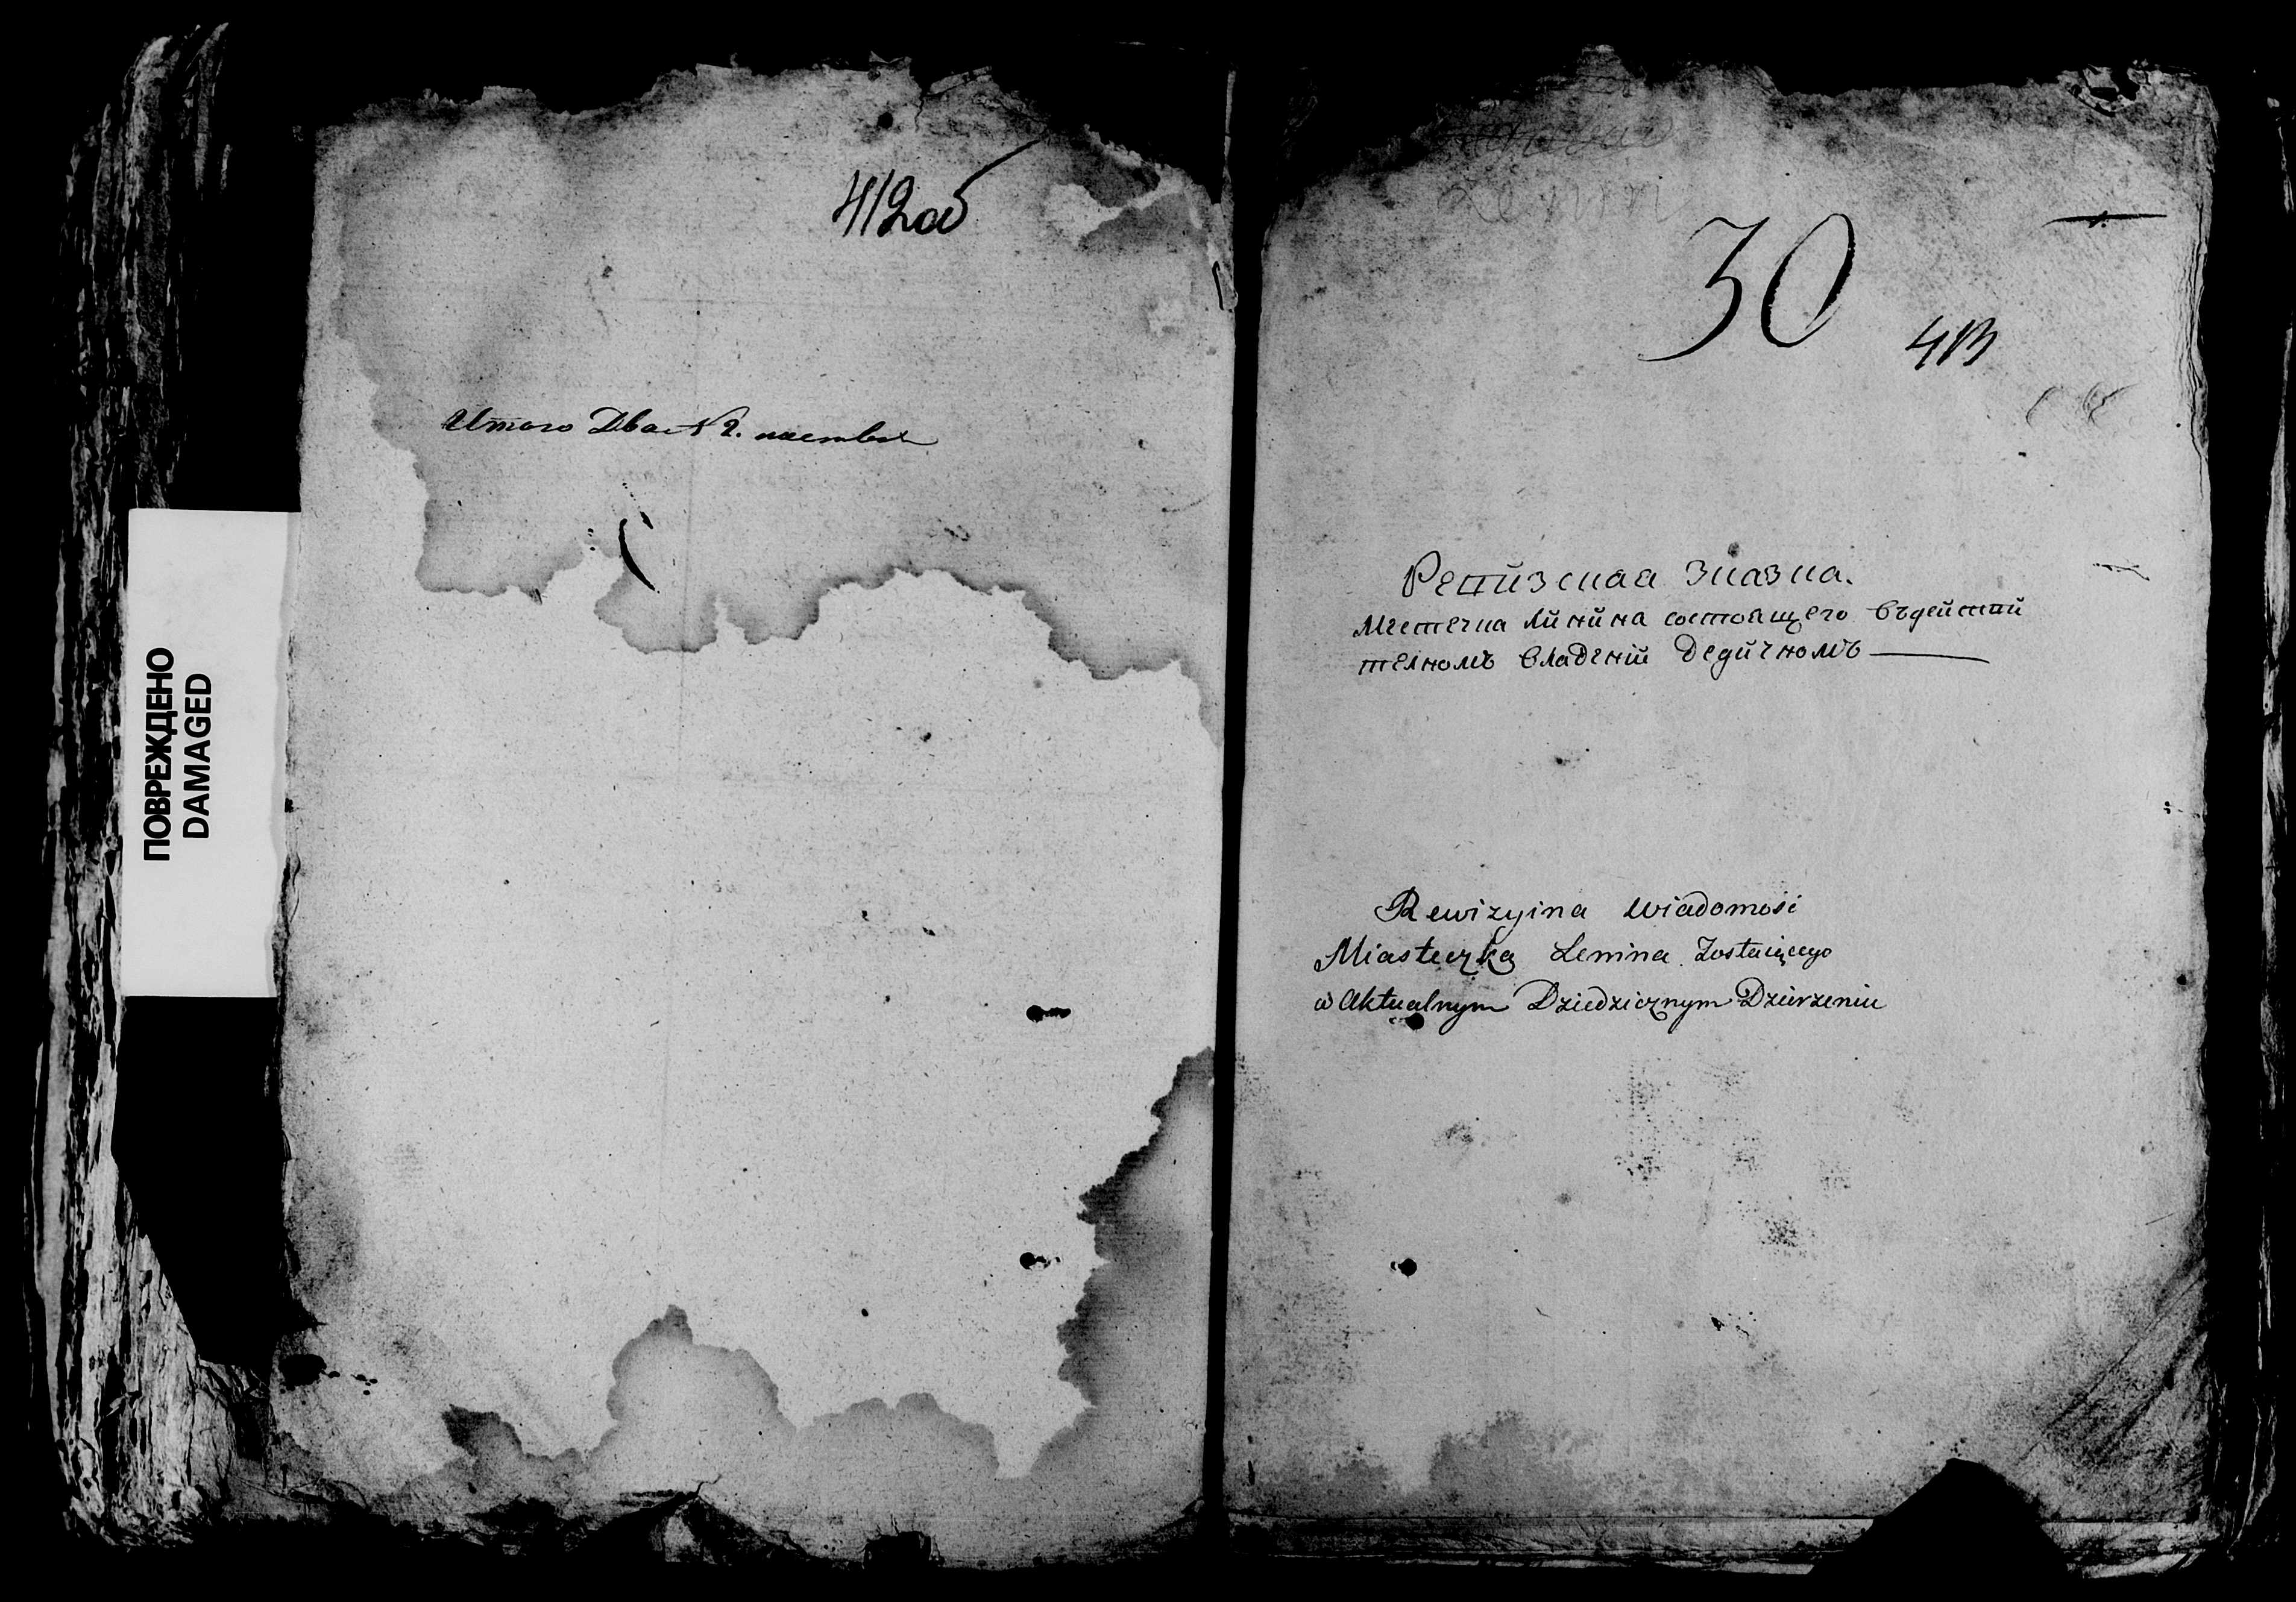 ПОВРЕЖДЕНО
DAMAGED
412об
Итого Два № 2.
30
413
Ревизская Сказка.
Местечка Линина состоящего въдействи
телномъ владении Дедичномъ
Rewizyina Wiadomość
Miasteczka Lenina Zostaiącego
w Aktualnym Dziedzicznym Dzierzeniu